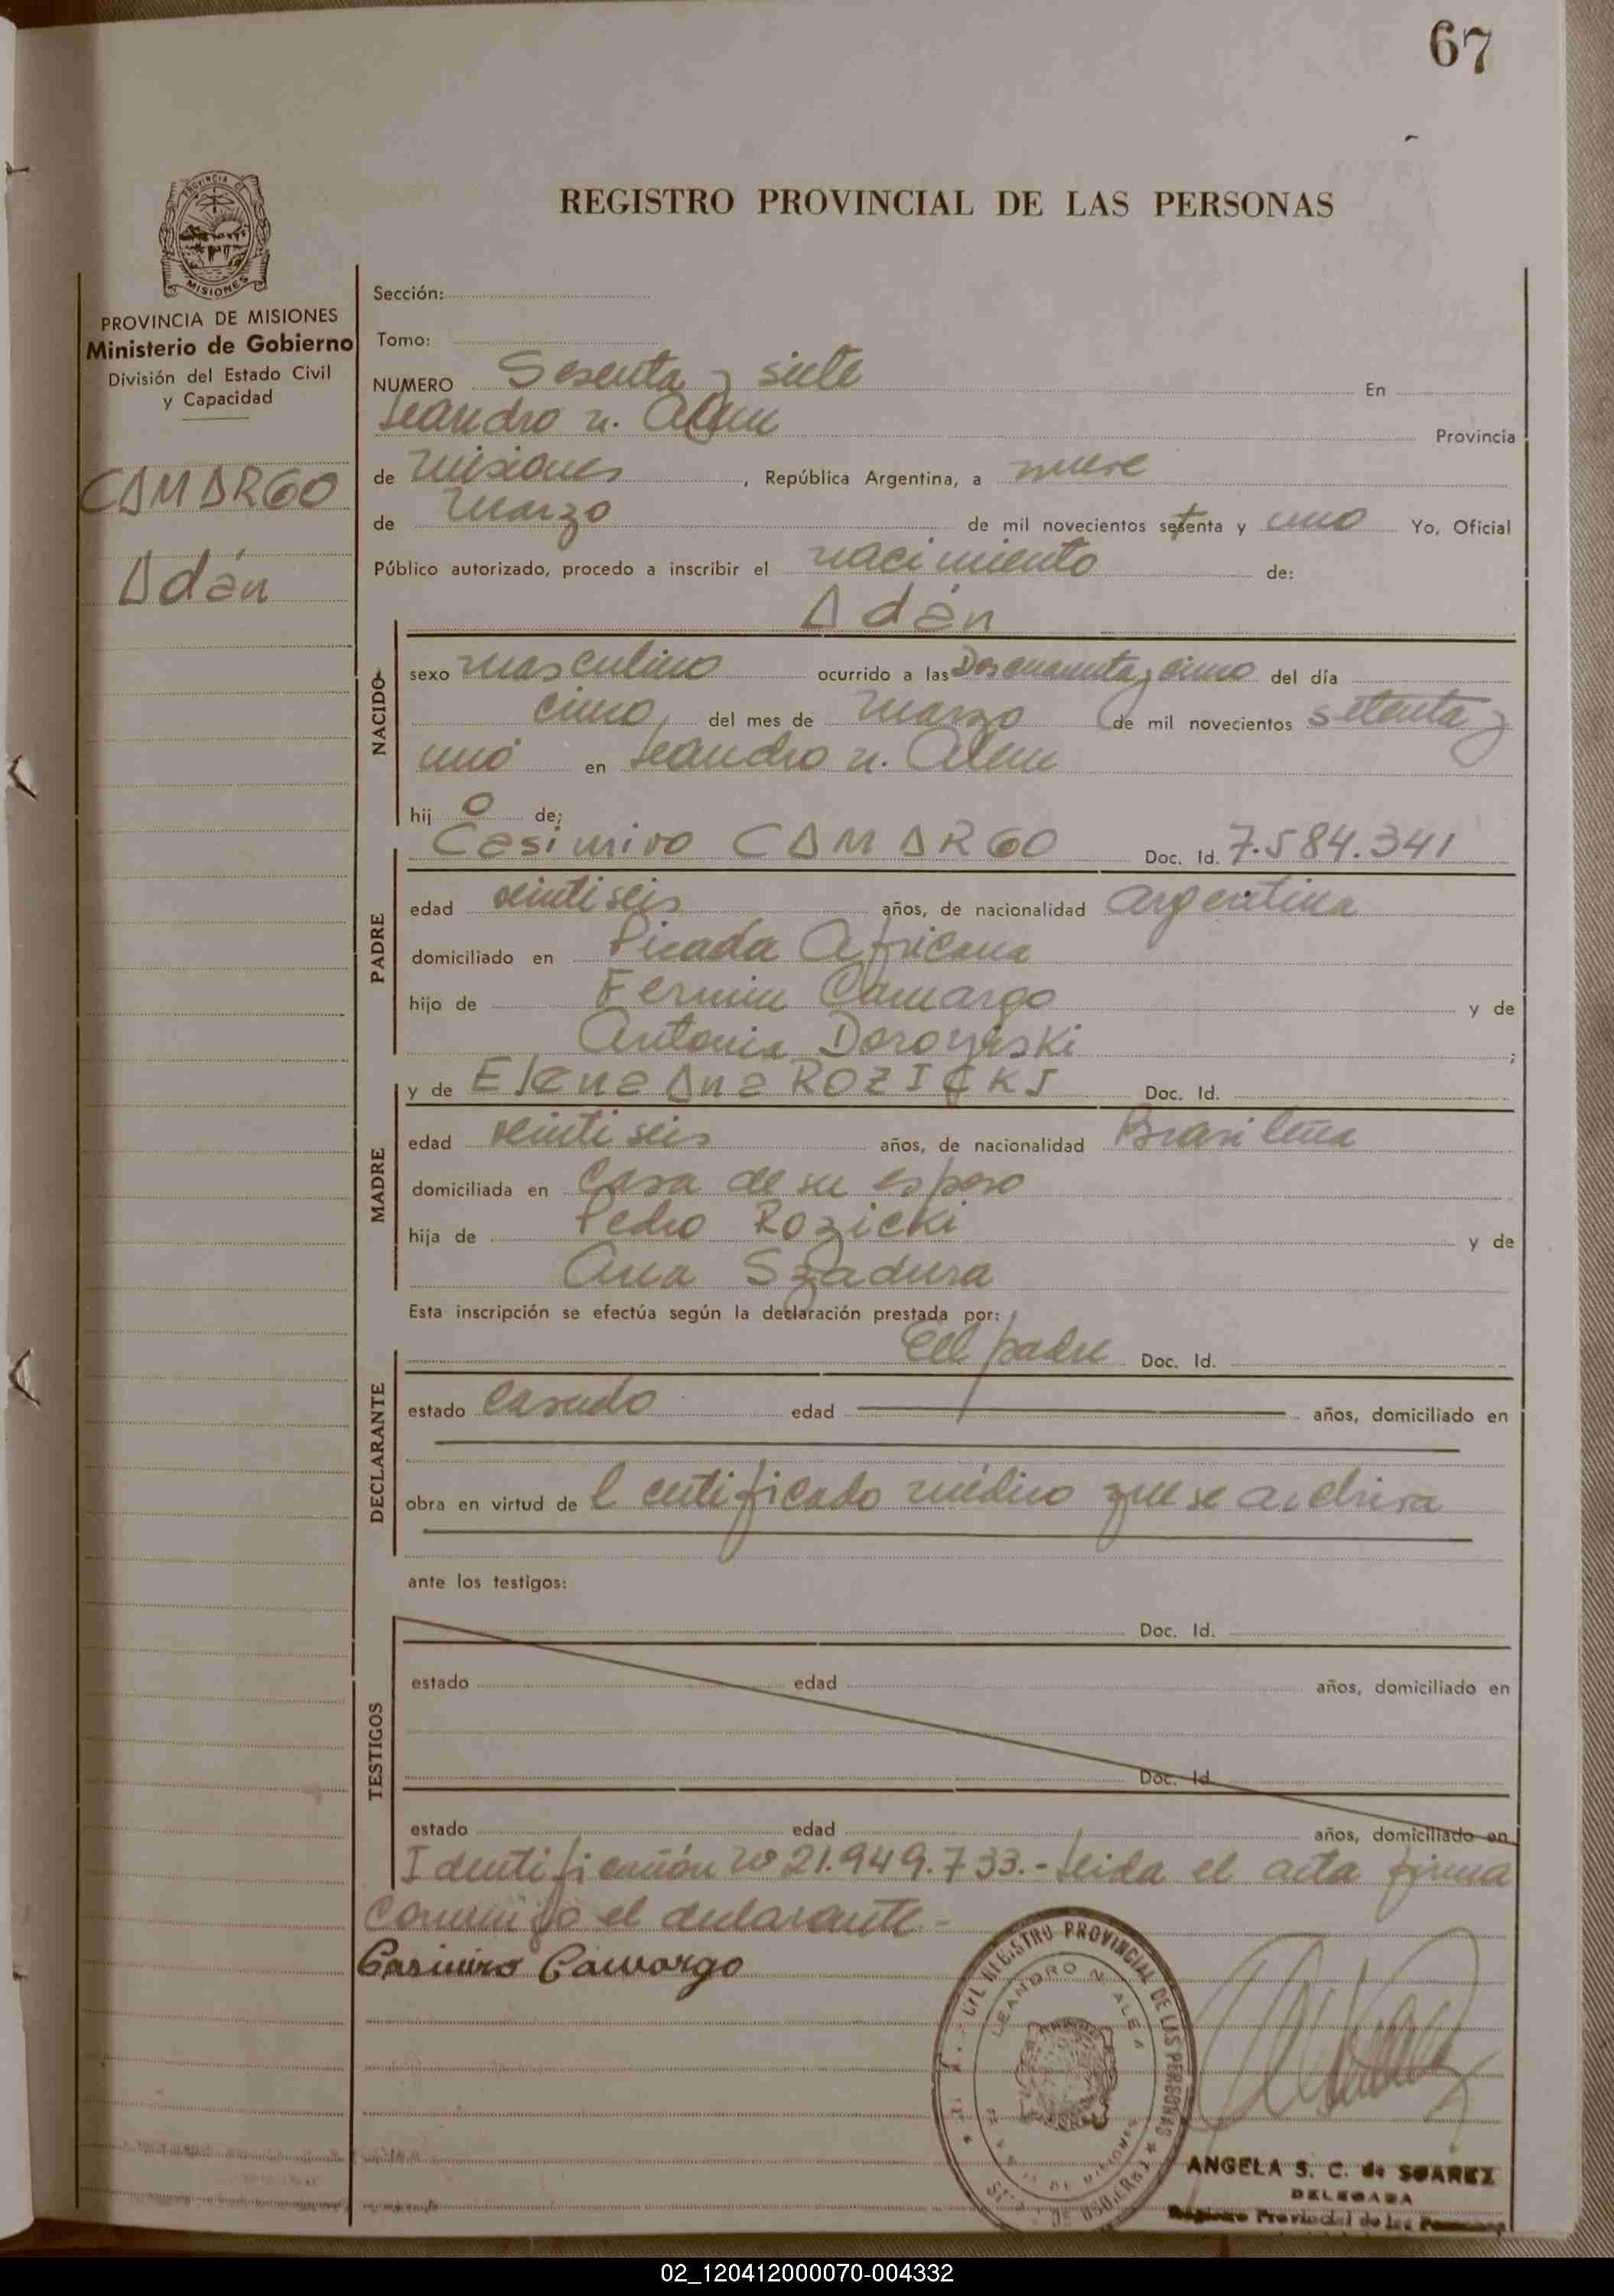 67
PROVINCIA DE
MISIONES
REGISTRO PROVINCIAL DE LAS PERSONAS
PROVINCIA DE MISIONES
Ministerio de Gobierno
División del Estado Civil
y Capacidad
CAMARGO
Adán
Sección:
Tomo:
NUMERO Sesenta y siete En
Leandro N. Alem Provincia
de Misiones, República Argentina, a nueve
de Marzo de mil novecientos setenta y uno Yo, Oficial
Público autorizado, procedo a inscribir el nacimiento de:
Adán
NACIDO
sexo masculino ocurrido a las Dos cuarenta y cinco del día
cinco del mes de Marzo de mil novecientos setenta y
uno en Leandro N. Alem
hij o de:
PADRE
Casimiro CAMARGO Doc. Id. 7.584.341
edad veintiseis años, de nacionalidad argentina
domiciliado en Picada Africana
hijo de Fermin Camargo y de
Antonia ;
MADRE
y de Elena Ana ROZICKI Doc. Id.
edad veintiseis años, de nacionalidad Brasileña
domiciliada en Casa de su esposo
hija de Pedro Rozicki y de
Ana Szadura
Esta inscripción se efectúa según la declaración prestada por:
DECLARANTE
El padre Doc. Id.
estado Casado edad años, domiciliado en
obra en virtud de l certificado médico que se archiva
ante los testigos:
TESTIGOS
Doc. Id.
estado edad años, domiciliado en
Doc. Id.
estado edad años, domiciliado en
Identificación Nº 21.949.733.- Leida el acta firma
conmigo el declarante -
Casimiro Camargo
REGISTRO PROVINCIAL DE LAS PERSONAS
LEANDRO N. ALEM
ANGELA S. C. de SUAREZ
DELEGADA
Registro Provincial de las Personas
02_120412000070-004332